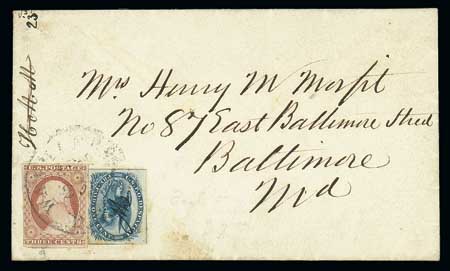 23
Mrs Henry M Morfit
No 87 East Baltimore Street
Baltimore
Md
U.S. POSTAGE
THREE CENTS